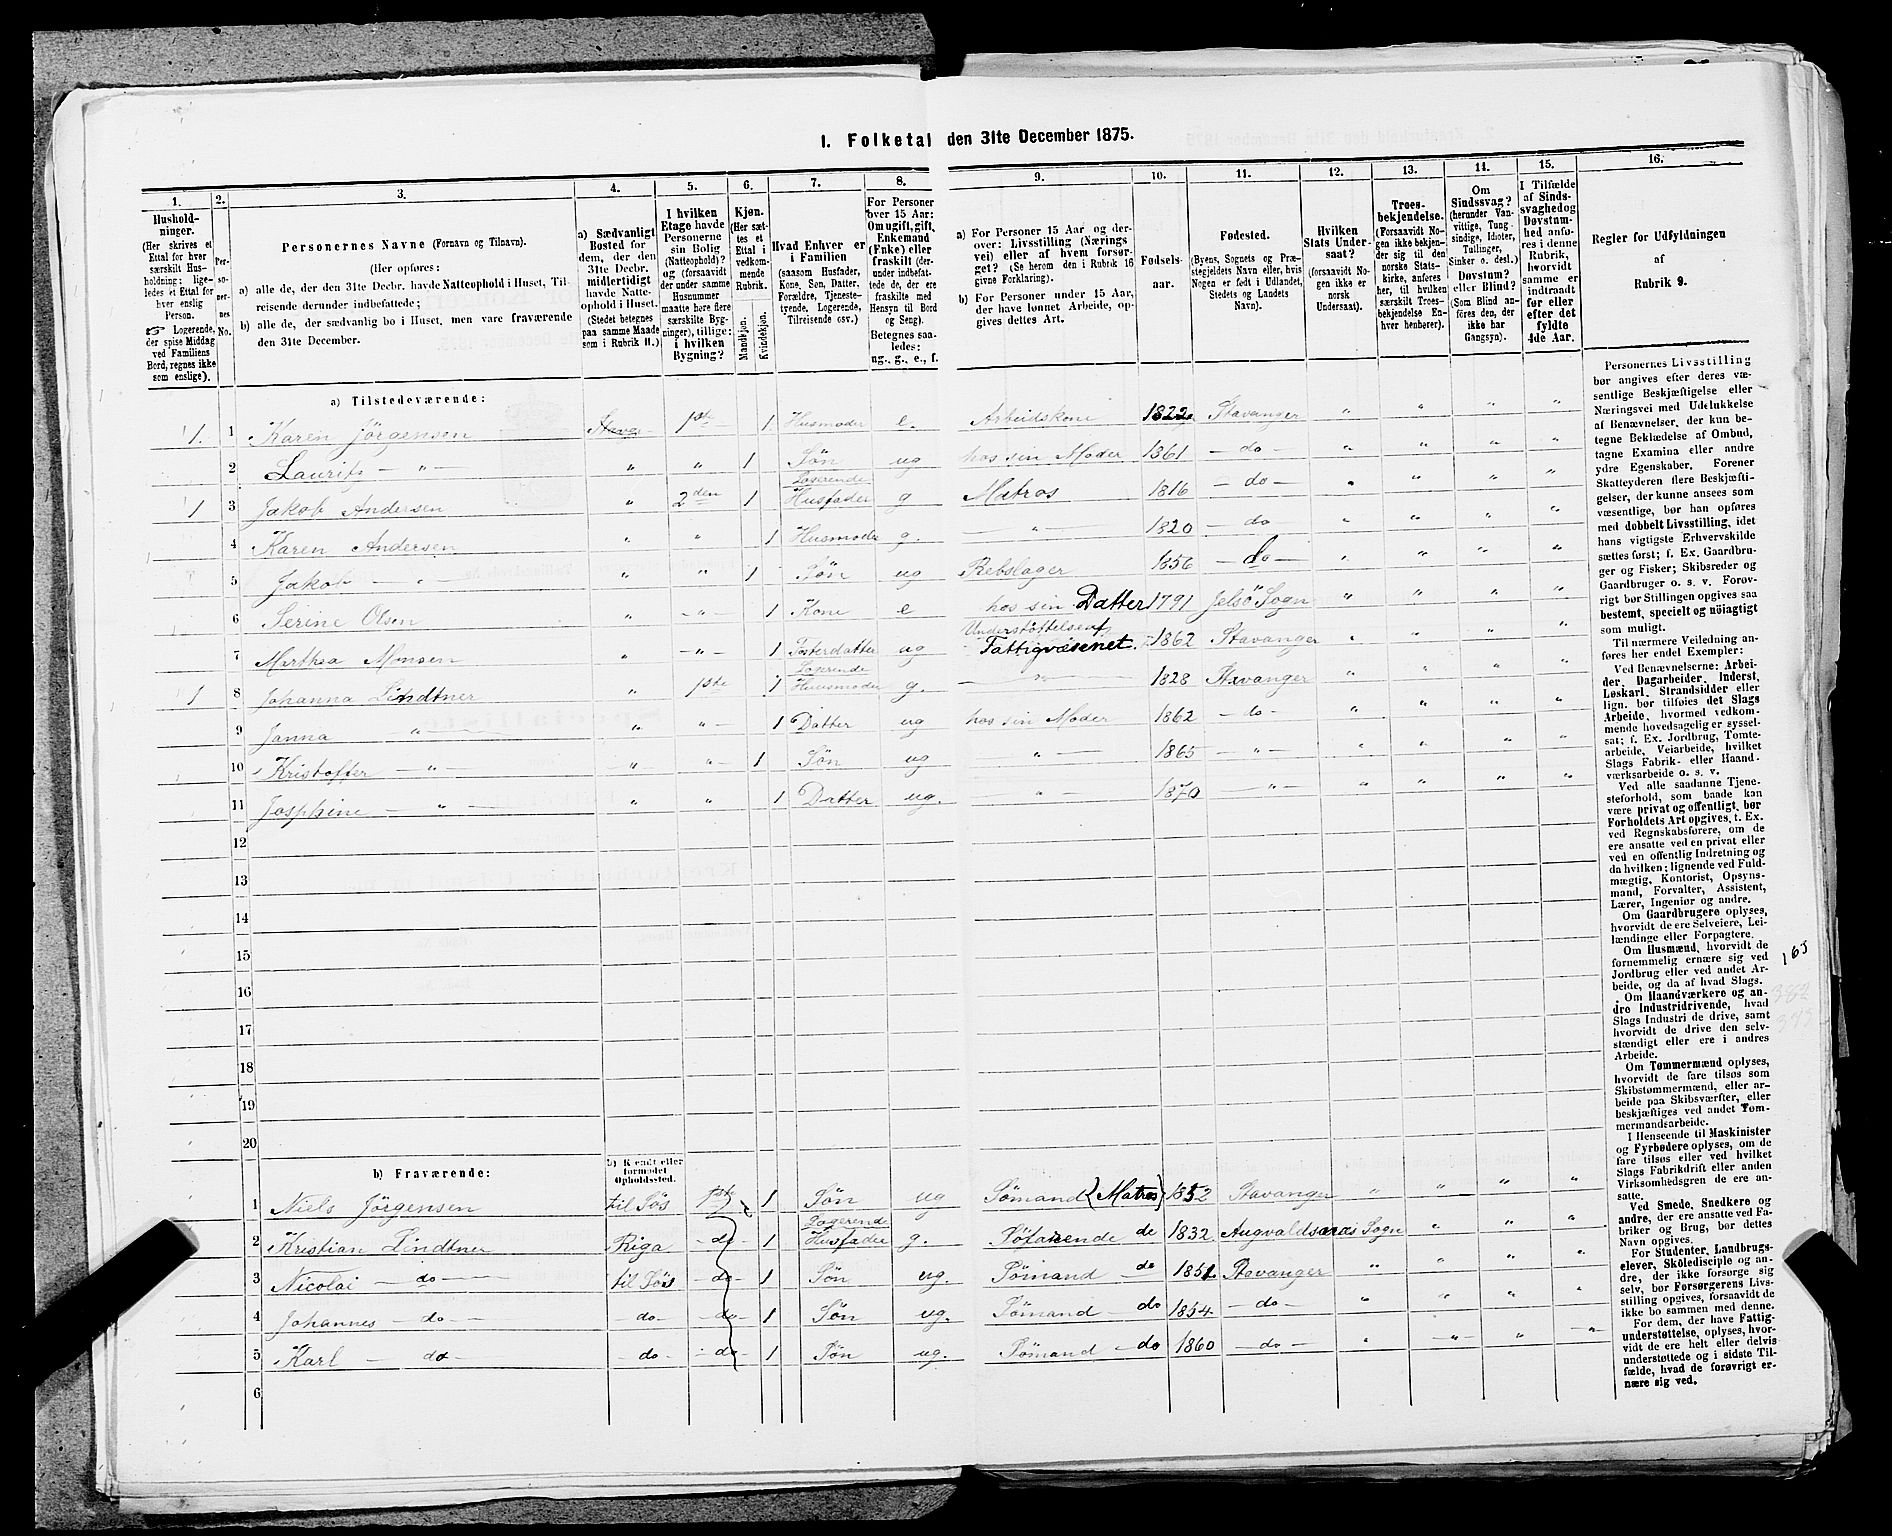 1. Folketal den 31te December 1875.
1. 2. 3. 4. 5. 6. 7. 8. 9. 10. 11. 12. 13. 14. 15. 16.
Hushold-
ninger.
(Her skrives et
Ettal for hver
særskilt Hus-
holdning; lige-
ledes et Ettal for
hver enslig
Person.
☞ Logerende,
der spise Middag
ved Familiens
Bord, regnes ikke
som enslige).
Per-
so-
ner-
nes
No.
Personernes Navne (Fornavn og Tilnavn).
(Her opføres:
a) alle de, der den 31te Decbr. havde Natteophold i Huset, Til-
reisende derunder indbefattede;
b) alle de, der sædvanlig bo i Huset, men vare fraværende
den 31te December.
a) Sædvanligt
Bosted for
dem, der den
31te Decbr.
midlertidigt
havde Natte-
ophold i Huset.
(Stedet betegnes
paa samme Maade
som i Rubrik 11.)
I hvilken
Etage havde
Personerne
sin Bolig
(Natteophold)?
og (forsaavidt
der under samme
Husnummer
maatte høre flere
særskilte Byg-
ninger), tillige:
i hvilken
Bygning?
Kjøn.
(Her sæt-
tes et
Ettal i
vedkom-
mende
Rubrik.
Mandkjøn.
Kvindekjøn.
Hvad Enhver er
i Familien
(saasom Husfader,
Kone, Søn, Datter,
Forældre, Tjeneste-
tyende, Logerende,
Tilreisende osv.)
For Personer
over 15 Aar:
Om ugift, gift,
Enkemand
(Enke) eller
fraskilt (der-
under indbefat-
tede de, der ere
fraskilte med
Hensyn til Bord
og Seng).
Betegnes saa-
ledes:
ug., g., e., f.
a) For Personer 15 Aar og der-
over: Livsstilling (Nærings
vei) eller af hvem forsør-
get? (Se herom den i Rubrik 16
givne Forklaring).
b) For Personer under 15 Aar,
der have lønnet Arbeide, op-
gives dettes Art.
Fødsels-
aar.
Fødested.
(Byens, Sognets og Præ-
stegjeldets Navn eller, hvis
Nogen er født i Udlandet,
Stedets og Landets
Navn).
Hvilken
Stats Under-
saat?
(forsaavidt No-
gen ikke er
norsk
Undersaat).
Troes-
bekjendelse.
(Forsaavidt No-
gen ikke bekjen-
der sig til den
norske Stats-
kirke, anføres
her, til hvilken
særskilt Troes-
bekjendelse En-
hver henhører).
Om
Sindssvag?
(herunder Van-
vittige, Tung-
sindige, Idioter,
Tullinger,
Sinker o. desl.)
Døvstum?
eller Blind?
(Som Blind an-
føres den, der
ikke har
Gangsyn).
I Tilfælde
af Sinds-
svaghedog
Døvstum-
hed anfø-
res i denne
Rubrik,
hvorvidt
samme er
indtraadt
før eller
efter det
fyldte
4de Aar.
Regler for Udfyldningen
af
Rubrik 9.
a) Tilstedeværende:
1. 1 Karen Jörgensen Stavgr 1ste 1 Husmoder e. Arbeidskone 1822 Stavanger " " " "
2 Lauritz — " — " " 1 Søn ug hos sin Moder 1861 — do — " " " "
1 3 Jakob Andersen " 2den 1 Logerende Husfader g Matros 1816 — do — " " " "
4 Karen Andersen " " 1 Husmoder g. — " — 1820 — do — " " " "
5 Jakob — " — " " 1 Søn ug Rebslager 1856 — do — " " " "
6 Serine Olsen " — " — 1 Kone e hos sin Datter 1791 Jelsö Sogn " " " "
7 Marthea Monsen " — " — 1 Fosterdatter ug Understöttelse af Fattigvæsenet. 1862 Stavanger " " " "
1 8 Johanna Lindtner " 1ste 1 Logerende Huusmoder g. — " — 1828 Stavanger " " " "
9 Janna — " — " " 1 Datter ug hos sin Moder 1862 — do — " " " "
10 Kristoffer — " — " " 1 Søn ug — " — 1865 — " — " " " "
11 Josphine — " — " " 1 Datter ug. — " — 1870 — " — " " " "
12
13
14
15
16
17
18
19
20
b) Fraværende:
b) Kjendt eller
formodet
Opholdssted.
1 Niels Jörgensen til Sös 1ste 1 Søn ug Sömand (Matros) 1852 Stavanger " " " "
2 Kristian Lindtner Riga — do — 1 Logerende Husfader g. Söfarende do 1832 Augvaldsnæs Sogn " " "
3 Nicolai — do — til Sös — do — 1 Søn ug. Sömand do 1851. Stavanger " " " "
4 Johannes — do — — do — — do — 1 Søn ug. Sömand — do 1854. — do — " " " "
5 Karl — do — — do — — do — 1 Søn ug. Sömand — do 1860 — do — " — " — " — " —
6
Personernes Livsstilling
bør angives efter deres væ-
sentlige Beskjæftigelse eller
Næringsvei med Udelukkelse
af Benævnelser, der kun be-
tegne Beklædelse af Ombud,
tagne Examina eller andre
ydre Egenskaber. Forener
Skatteyderen flere Beskjæfti-
gelser, der kunne ansees som
væsentlige, bør han opføres
med dobbelt Livsstilling, idet
hans vigtigste Erhvervskilde
sættes først; f. Ex. Gaardbru-
ger og Fisker; Skibsreder og
Gaardbruger o. s. v. Forøv-
rigt bør Stillingen opgives saa
bestemt, specielt og nöiagtigt
som muligt.
Til nærmere Veiledning an-
føres her endel Exempler:
Ved Benævnelserne: Arbei-
der, Dagarbeider, Inderst,
Løskarl, Strandsidder eller
lign. bør tilføies det Slags
Arbeide, hvormed vedkom-
mende hovedsagelig er syssel-
sat; f. Ex. Jordbrug, Tomte-
arbeide, Veiarbeide, hvilket
Slags Fabrik- eller Haand-
værksarbeide o. s. v.
Ved alle saadanne Tjene-
steforhold, som baade kan
være privat og offentligt, bør
Forholdets Art opgives, t. Ex.
ved Regnskabsførere, om de
ere ansatte ved en privat eller
ved en offentlig Indretning og
da hvilken; lignende ved Fuld-
mægtig, Kontorist, Opsyns-
mand, Forvalter, Assistent,
Lærer, Ingeniør og andre.
Om Gaardbrugere oplyses,
hvorvidt de ere Selveiere, Lei-
lændinge eller Forpagtere.
Om Husmænd, hvorvidt de
fornemmelig ernære sig ved
Jordbrug eller ved andet Ar-
beide, og da af hvad Slags.
Om Haandværkere og an-
dre Industridrivende, hvad
Slags Industri de drive, samt
hvorvidt de drive den selv-
stændigt eller ere i andres
Arbeide.
Om Tømmermænd oplyses,
hvorvidt de fare tilsøs som
Skibstømmermænd, eller ar-
beide paa Skibsværfter, eller
beskjæftiges ved andet Tøm-
mermandsarbeide.
I Henseende til Maskinister
og Fyrbødere oplyses, om de
fare tilsøs eller ved hvilket
Slags Fabrikdrift eller anden
Virksomhedsgren de ere an-
satte.
Ved Smede, Snedkere og
andre, der ere ansatte ved Fa-
briker og Brug, bør dettes
Navn opgives.
For Studenter, Landbrugs-
elever, Skoledisciple og an-
dre, der ikke forsørge sig
selv, bør Forsørgerens Livs-
stilling opgives, forsaavidt de
ikke bo sammen med denne.
For dem, der have Fattig-
understøttelse, oplyses, hvor-
vidt de ere helt eller delvis
understøttede og i sidste Til-
fælde, hvad de forøvrigt er-
nære sig ved.
165
382